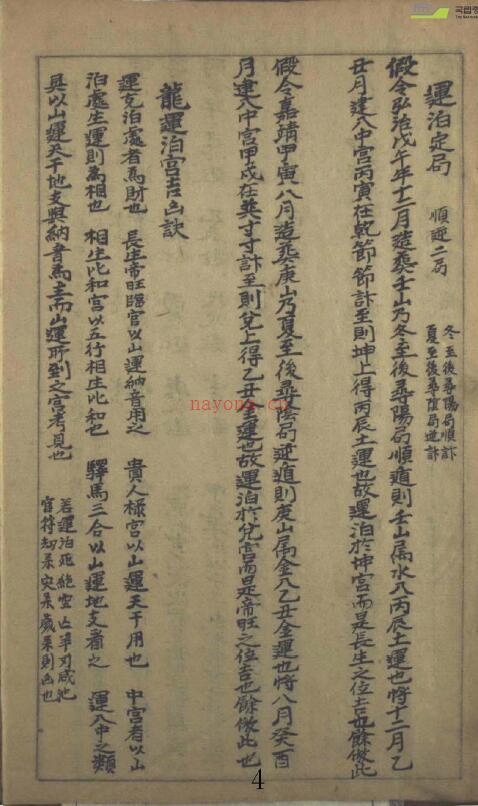 運泊定局 順逆二局 冬至後尋陽局順計
夏至後尋陰局逆計
假令弘治戊午年十二月造葬壬山乃冬至後尋陽局順遁則壬山属水八丙辰土運也将十二月乙
丑月建入中宮丙寅在乾節節計至則坤上得丙辰土運也故運泊於坤宮而是長生之位吉也餘倣此
假令嘉靖甲寅八月造葬庚山乃夏至後尋陰局逆遁則庚山属金八乙丑金運也将八月癸酉
月建入中宮甲戌在巽寸寸計至則兌上得乙丑金運也故運泊於兌宮而是帝旺之位吉也餘倣此也
龍運泊宮吉凶訣
運克泊處者為財也 長生帝旺臨官以山運納音用之 貴人祿宮以山運天干用也 中宮者以山
泊處生運則為相也 相生比和宮以五行相生比和也 驛馬三合以山運地支看之 運入中之類
具以山運天干地支與納音為主而山運所到之宮考見也 若運泊死絶空亡羊刃咸池
官符劫杀灾杀歲杀則凶也
nayona.cn
국립중
4